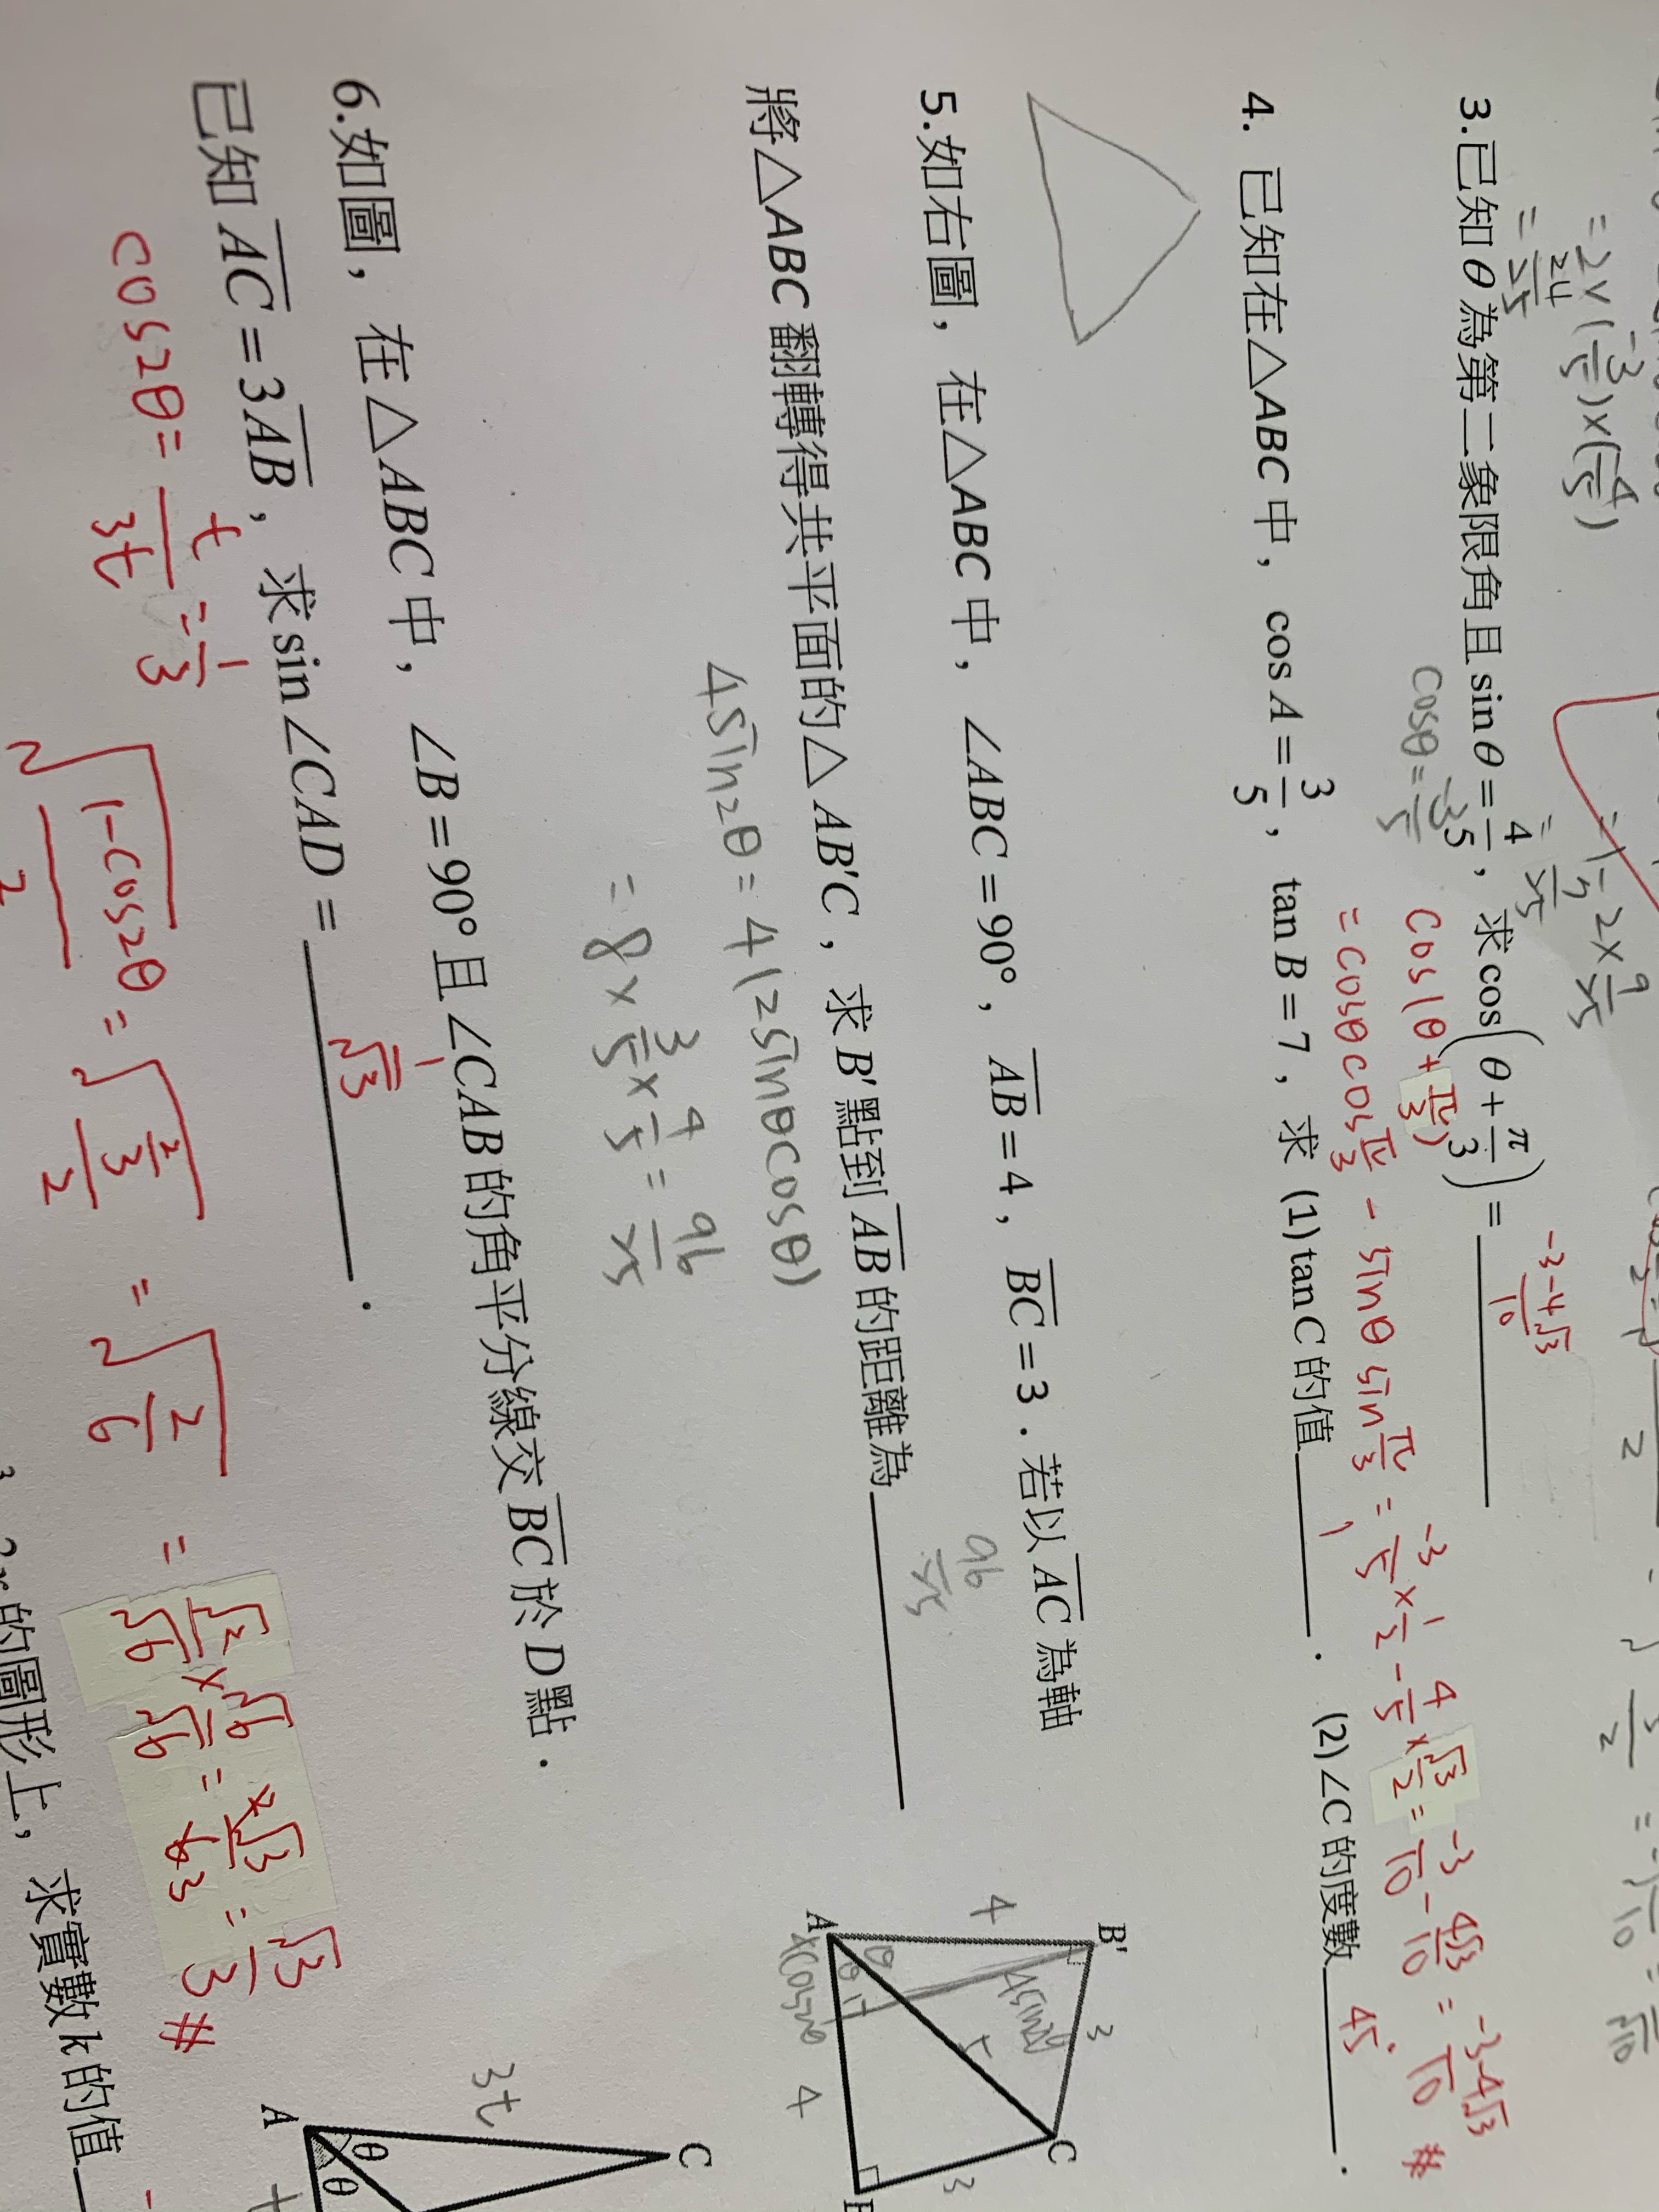 = 2×(-3/5)×(4/5)
= 24/25
= 1-2×9/25
3.已知θ為第二象限角且 sinθ=4/5，求cos(θ+π/3)=
-3-4√3/10
cosθ=-3/5
cos(θ+π/3)
=cosθcosπ/3 - sinθ sinπ/3 = -3/5×1/2 - 4/5×√3/2 = -3/10 - 4√3/10 = -3-4√3/10 #
4. 已知在△ABC中，cos A=3/5，tan B=7，求 (1)tan C的值 1 ． (2)∠C的度數 45° ．
5.如右圖，在△ABC中，∠ABC=90°，AB=4，BC=3．若以AC為軸
將△ABC翻轉得共平面的△AB'C，求B'點到AB的距離為 96/25
4sin2θ=4(2sinθcosθ)
=8×3/5×4/5=96/25
B'
4
3
A
θ
θ
4sin2θ
5
4cos2θ
4
C
3
6.如圖，在△ABC中，∠B=90°且∠CAB的角平分線交BC於D點．
已知AC=3AB，求sin∠CAD= 1/√3 ．
cos2θ=t/3t=1/3
√1-cos2θ/2=√2/3/2=√2/6=√2/√6×√6/√6=√3/3 #
3t
A
θ
θ
C
t
的圖形上，求實數k的值